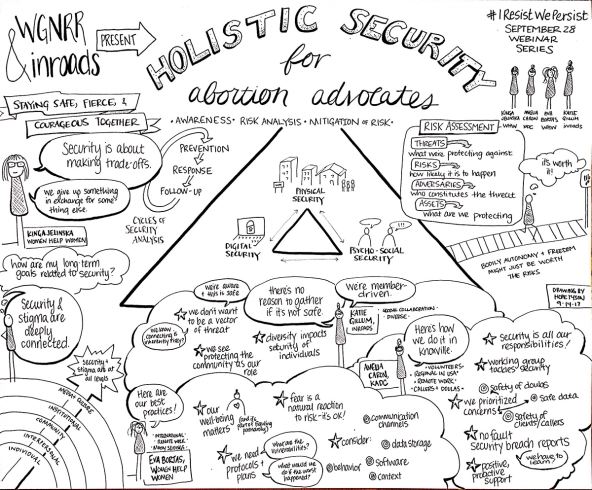 WGNRR
& inroads
PRESENT
HOLISTIC SECURITY
for
abortion advocates
• AWARENESS • RISK ANALYSIS • MITIGATION of RISK •
#IResistWePersist
SEPTEMBER 28
WEBINAR
SERIES
KINGA
JELINSKA
WHW
AMELIA
CARON
EVA
BORJAS
WHW
KATIE
GILLUM
inroads
STAYING SAFE, FIERCE, &
COURAGEOUS TOGETHER
Security is about
making trade-offs.
We give up something
in exchange for some
thing else.
KINGA JELINSKA
WOMEN HELP WOMEN
PREVENTION
RESPONSE
FOLLOW-UP
CYCLES OF
SECURITY
ANALYSIS
PHYSICAL
SECURITY
DIGITAL
SECURITY
PSYCHO-SOCIAL
SECURITY
RISK ASSESSMENT
THREATS
what we're protecting against
RISKS
how likely it is to happen
ADVERSARIES
who constitutes the threat
ASSETS
what are we protecting
it's worth
it!
BODILY AUTONOMY + FREEDOM
MIGHT JUST BE WORTH
THE RISKS
DRAWING BY
9-14-17
How are my long-term
goals related to security?
Security &
stigma are
deeply
connected.
Security +
stigma are at
all levels
INSTITUTIONAL
COMMUNITY
INTERPERSONAL
INDIVIDUAL
we don't want
to be a vector
of threat
we see
protecting the
community as our
role
there's no
reason to gather
if it's not safe.
diversity impacts
security of
individuals
We're member-
driven.
KATIE
GILLUM,
INROADS
DIVERSE
Here's how
we do it in
knoxville.
AMELIA
CARON,
• VOLUNTEERS •
REGIONAL IN USA
REMOTE WORK
CALLERS + DOULAS
Security is all our
responsibilities!
working group
tackles security
we prioritized
concerns
safety of doulas
safe data
safety of
clients/callers
no fault
security breach reports
positive,
proactive
support
we have to
learn!
Here are
our best
practices!
INTERNATIONAL
REMOTE WORK
EVA BORJAS,
WOMEN HELP
WOMEN
our
well-being
matters
we need
protocols +
plans
fear is a
natural reaction
to risk - it's ok!
what are the
vulnerabilities?
what would we
do if the worst
happened?
consider:
communication
channels
data storage
software
behavior
context